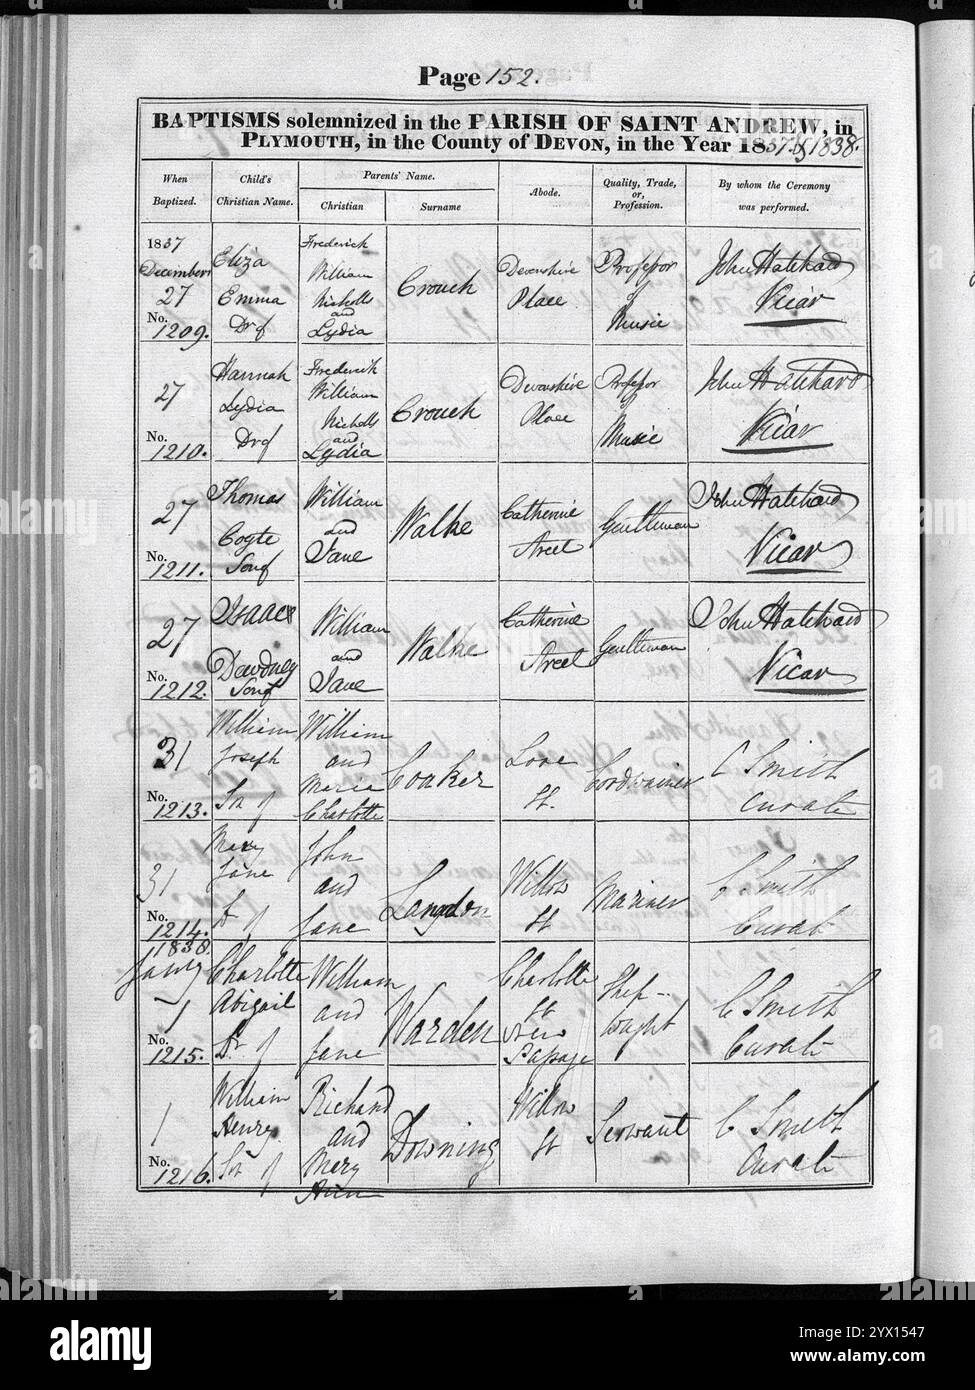 Page 152.
BAPTISMS solemnized in the PARISH OF SAINT ANDREW, in
PLYMOUTH, in the County of DEVON, in the Year 1837. & 1838.
When Baptized. Child's Christian Name. Parents' Name. Christian Surname Abode. Quality, Trade, or, Profession. By whom the Ceremony was performed.
1837 December 27 No. 1209. Eliza Emma Dr of Frederick William Nicholls and Lydia Crouch Devonshire Place Professor of Music John Hatchard Vicar
27 No. 1210. Hannah Lydia Dr of Frederick William Nicholls and Lydia Crouch Devonshire Place Professor of Music John Hatchard Vicar
27 No. 1211. Thomas Cogte Son of William and Jane Walke Catherine Street Gentleman John Hatchard Vicar
27 No. 1212. Isaac Dawdney Son of William and Jane Walke Catherine Street Gentleman John Hatchard Vicar
31 No. 1213. William Joseph Sn of William and Maria Charlotte Coaker Love St. Cordwainer C Smith Curate
31 No. 1214. Mary Jane Dr of John and Jane Langdon Willow St Mariner C Smith Curate
1838. Jany 1 No. 1215. Charlotte Abigail Dr of William and Jane Warden Charlotte St New Passage C Smith Curate
1 No. 1216. William Henry Sn of Richard and Mary Ann Downing Willow St Servant C Smith Curate
alamy
Image ID: 2XX1547
www.alamy.com